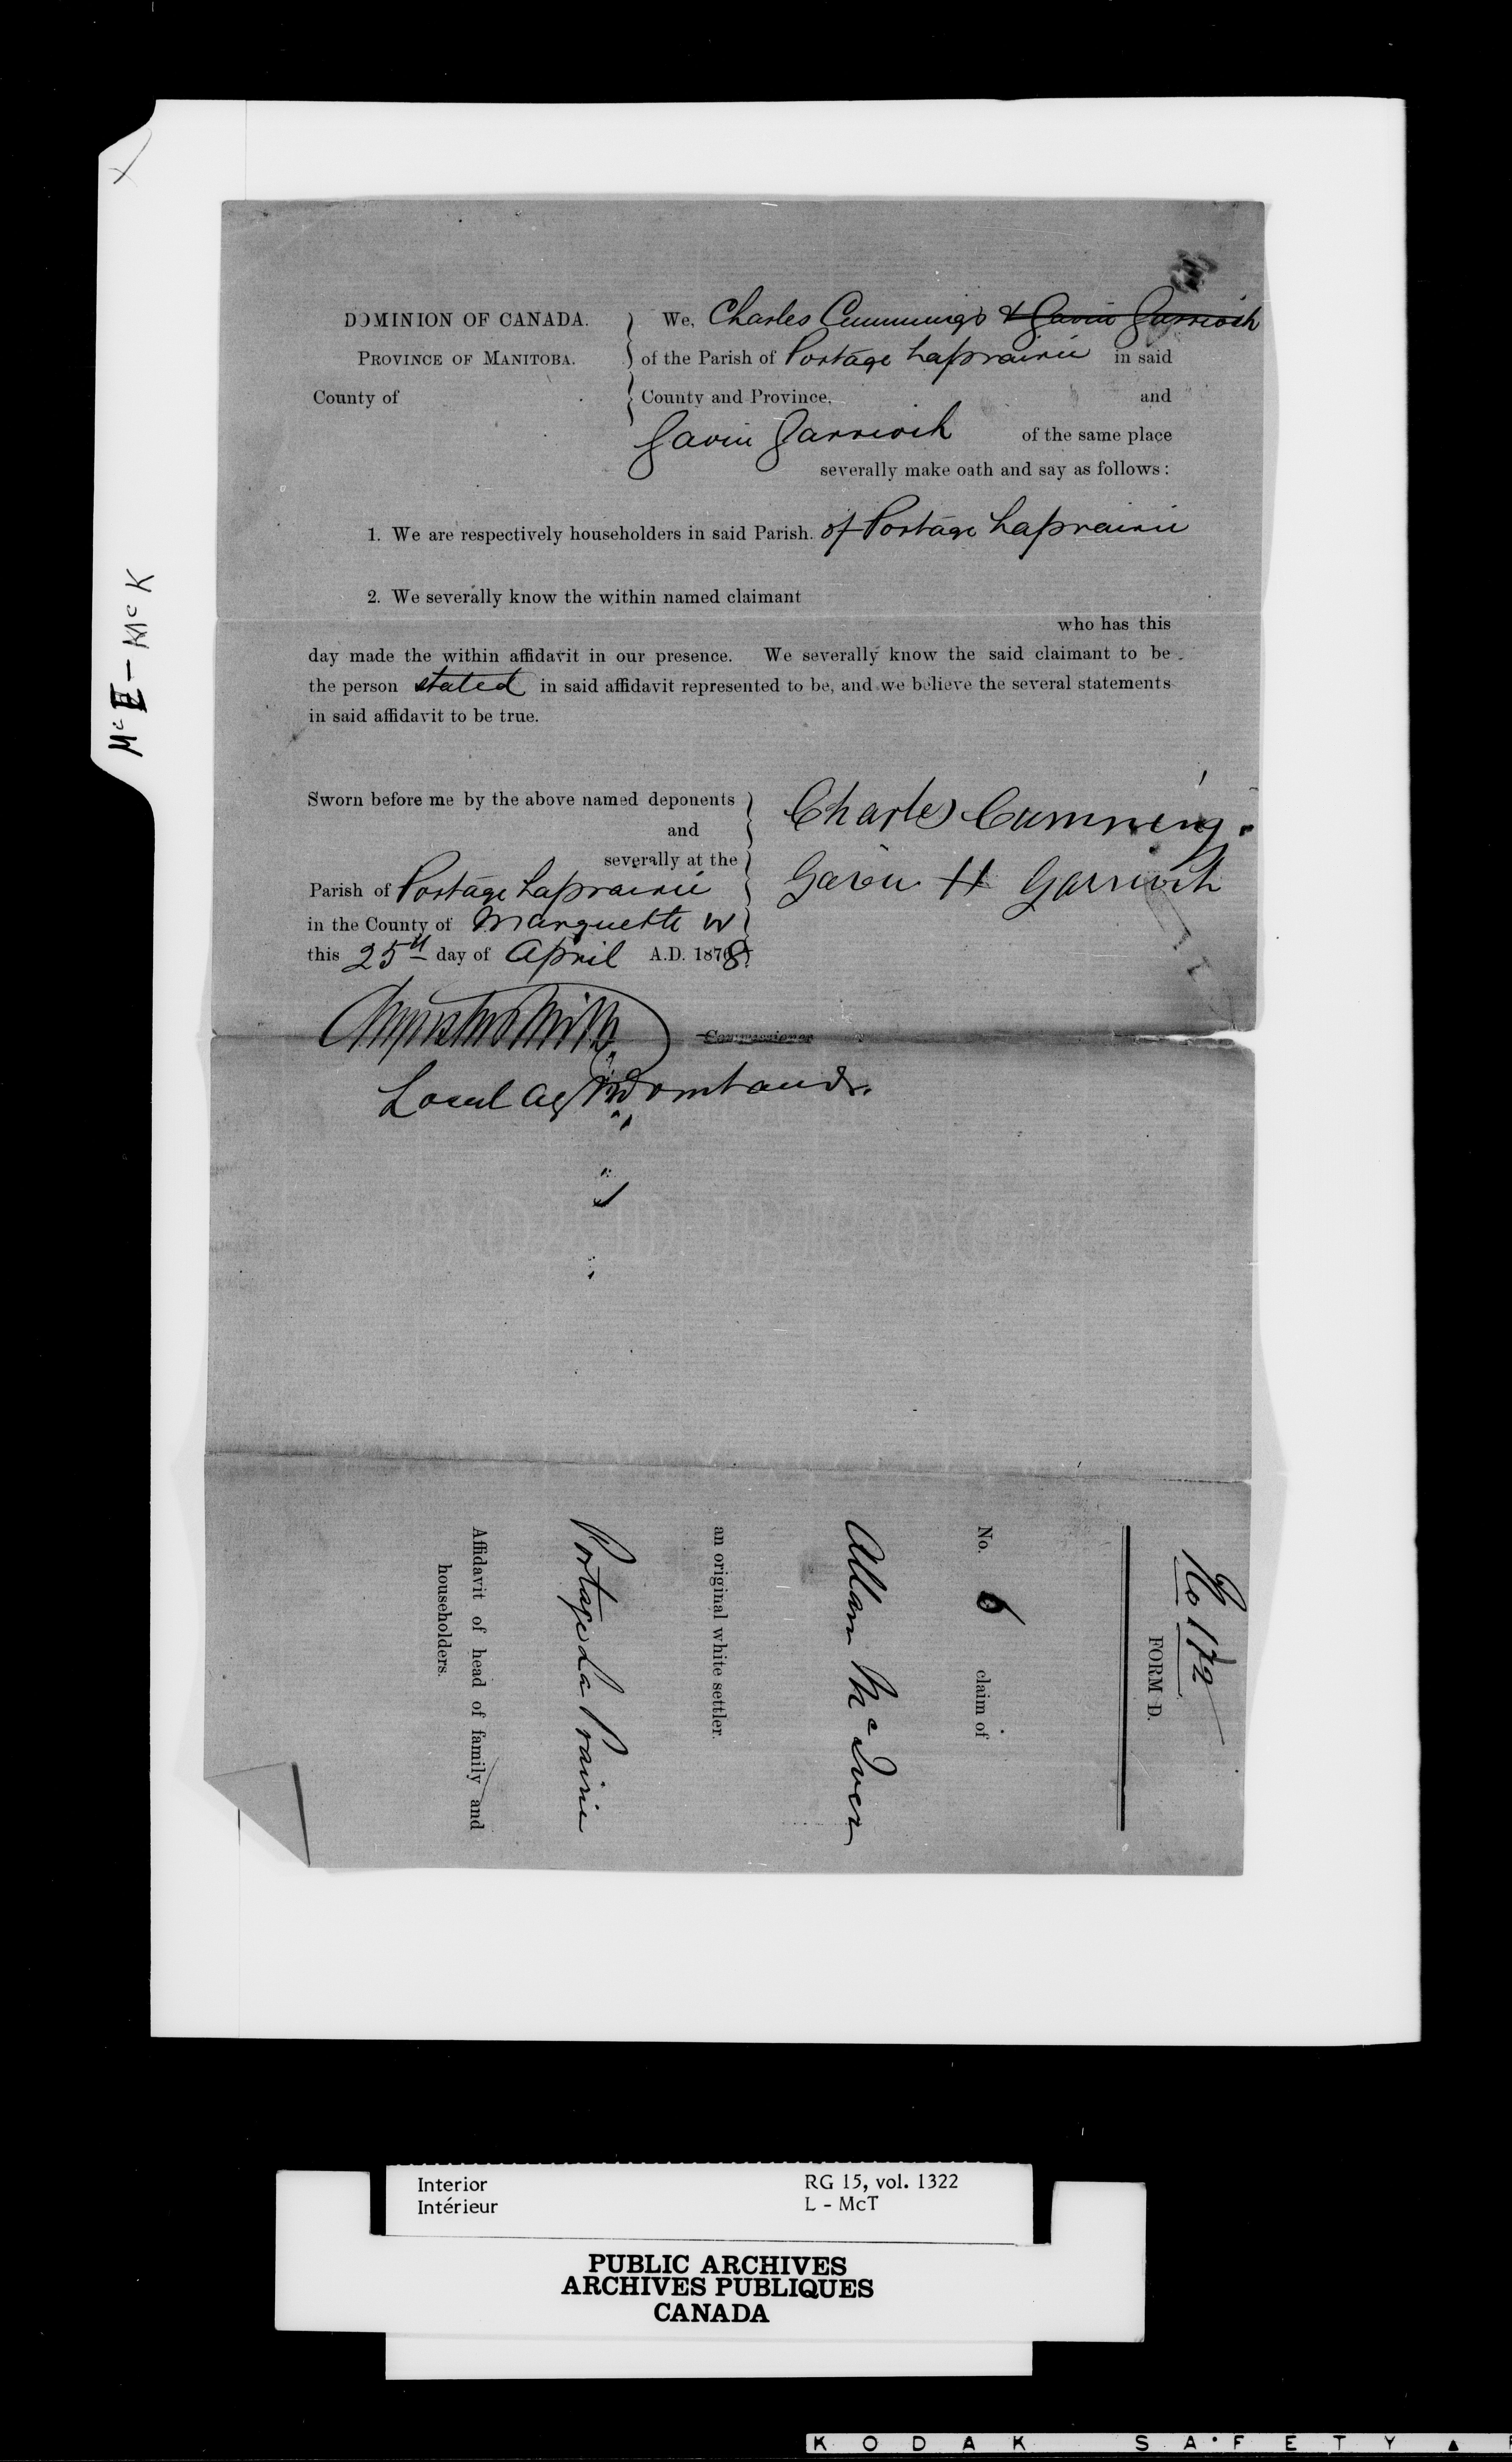 McE - McK
DOMINION OF CANADA.
PROVINCE OF MANITOBA.
County of
We, Charles Cummings & Gavin Garrioch
of the Parish of Portage Laprairie in said
County and Province, and
Gavin Garrioch of the same place
severally make oath and say as follows:
1. We are respectively householders in said Parish. of Portage Laprairie
2. We severally know the within named claimant
who has this
day made the within affidavit in our presence. We severally know the said claimant to be
the person stated in said affidavit represented to be, and we believe the several statements
in said affidavit to be true.
Sworn before me by the above named deponents
and
severally at the
Parish of Portage Laprairie
in the County of Marquette W
this 25th day of April A.D. 1878
Charles Cumming.
Gavin H Garrioch
Commissioner
Local Agt Dom Lands.
No 172
FORM D.
No. 6 claim of
Allan McIver
an original white settler.
Portage La Prairie
Affidavit of head of family and
householders.
Interior
Intérieur
RG 15, vol. 1322
L - McT
PUBLIC ARCHIVES
ARCHIVES PUBLIQUES
CANADA
KODAK SAFETY